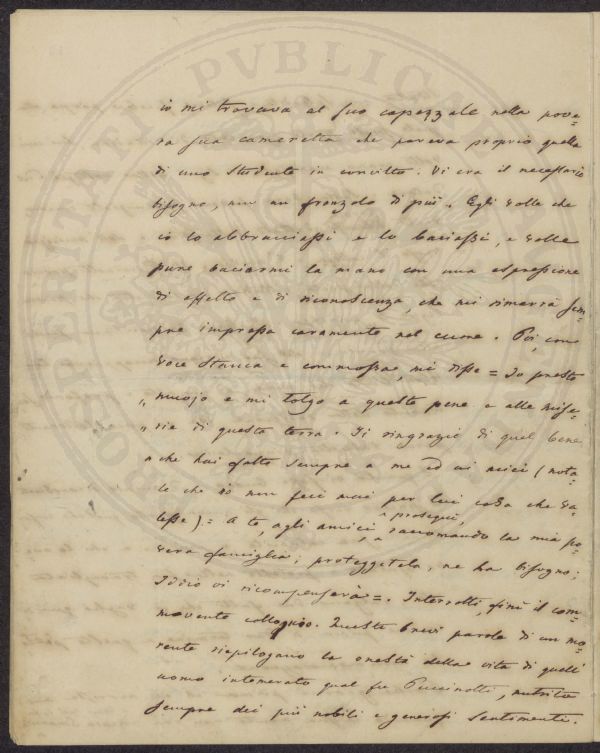 io mi trovava al suo capezzale nella pove=
ra sua cameretta che pareva proprio quella
di uno studente in convitto. Vi era il necessario
bisogno, non un fronzolo di più. Egli volle che
io lo abbracciassi e lo baciassi, e volle
pure baciarmi la mano con una espressione
di affetto e di riconoscenza, che mi rimarrà sem=
pre impressa caramente nel cuore. Poi, con
voce stanca e commossa, mi disse = Io presto
„ muojo e mi tolgo a queste pene e alle mise=
„ rie di questa terra. Ti ringrazio di quel bene
„ che hai fatto sempre a me ed ai miei (nota=
te che io non feci mai per lui cosa che va=
lesse) = A te, agli amici, proseguì, raccomando la mia po=
vera famiglia; proteggetela, ne ha bisogno;
Iddio vi ricompenserà =. Interrotti, finì il com=
movente colloquio. Queste brevi parole di un mo=
rente riepilogano la onestà della vita di quell'
uomo intemerato qual fu Puccinotti, nutrito
sempre dei più nobili e generosi sentimenti.
PUBLICAE
POSTERITATI